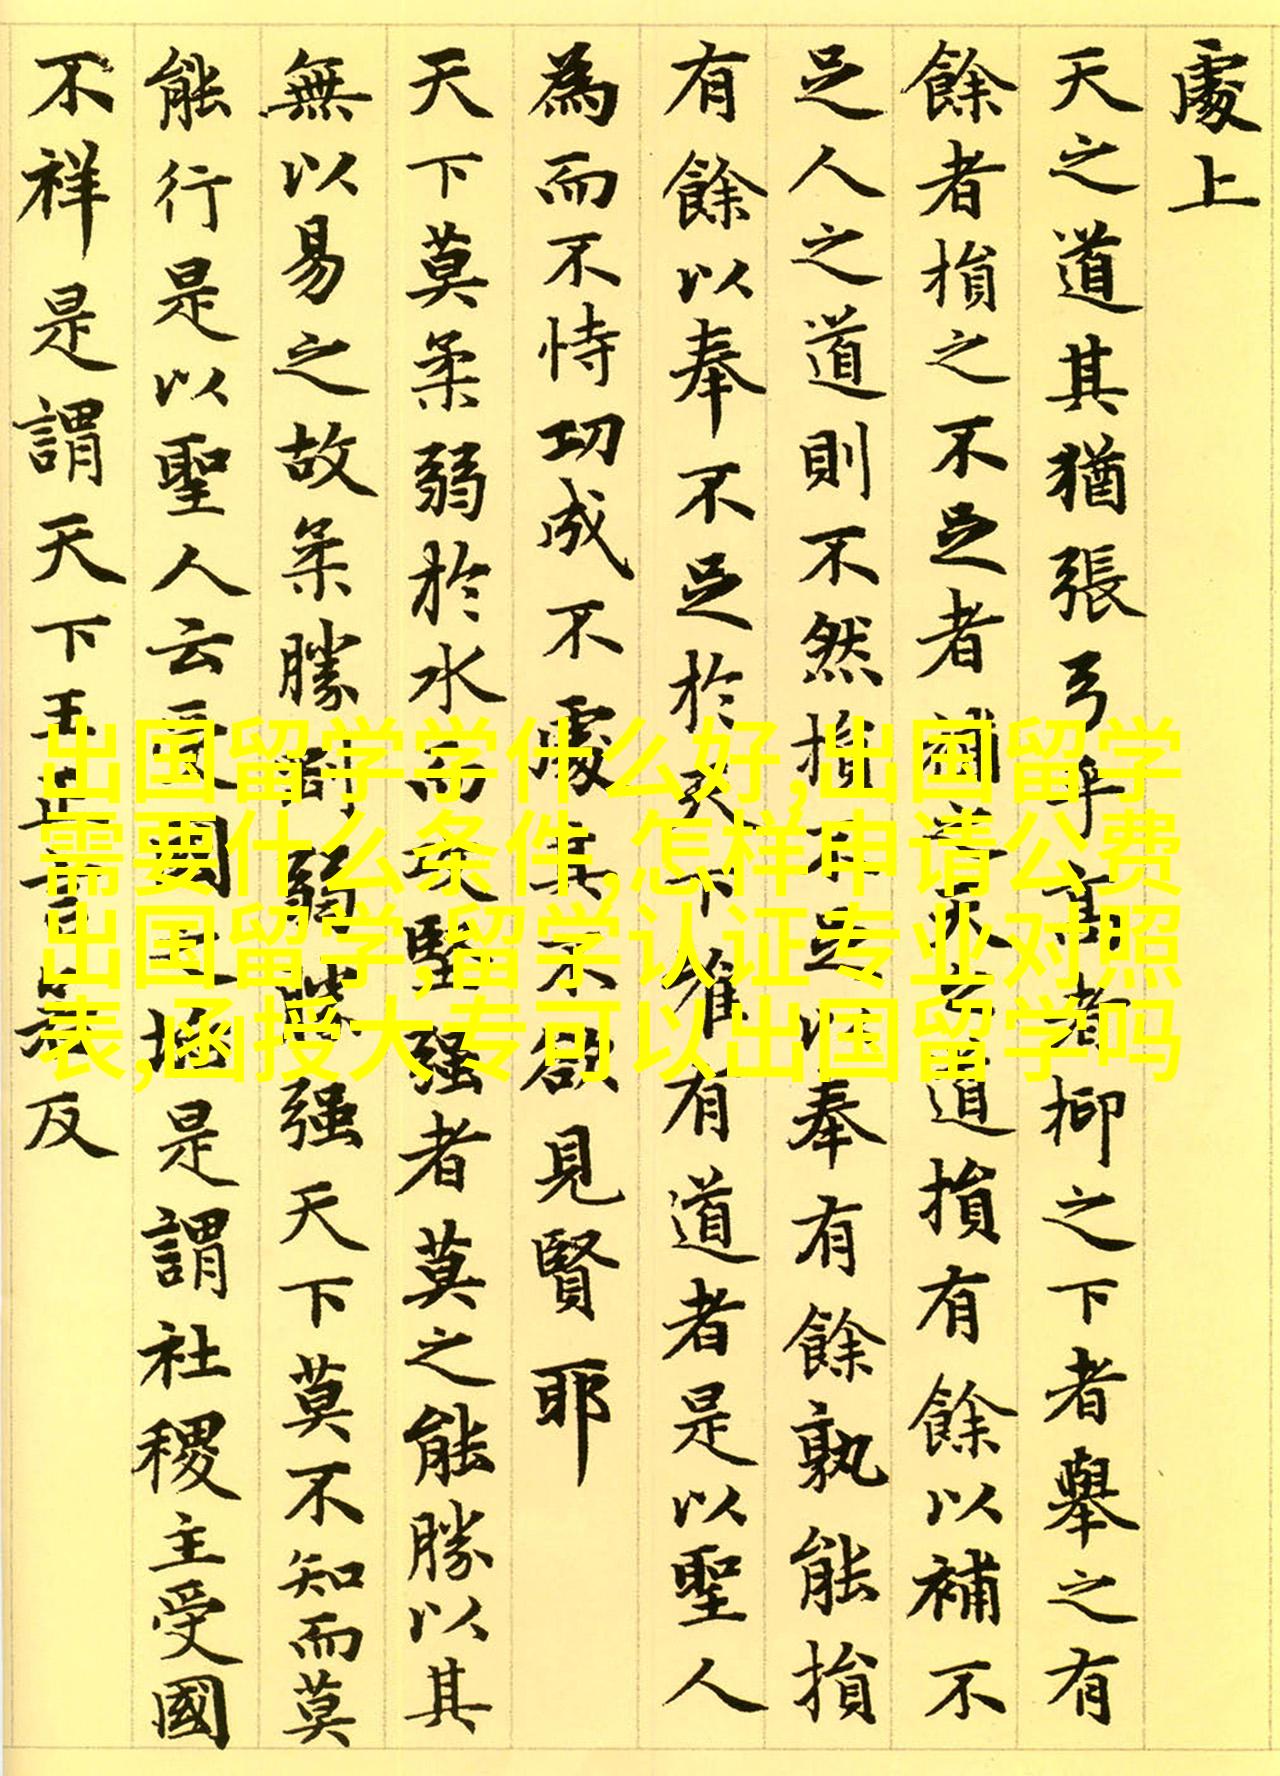 處上
天之道其猶張弓乎高者抑之下者舉之有
餘者損之不足者補之天之道損有餘以補不
足人之道則不然損不足以奉有餘孰能損
有餘以奉不足於天下唯有道者是以聖人
為而不恃功成不處其不欲見賢耶
天下莫柔弱於水而攻堅强者莫之能勝以其
無以易之故柔勝剛弱勝强天下莫不知而莫
能行是以聖人云受國之垢是謂社稷主受國
不祥是謂天下王正言若反
出国留学学什么好,出国留学
需要什么条件,怎样申请公费
出国留学,留学认证专业对照
表,函授大专可以出国留学吗